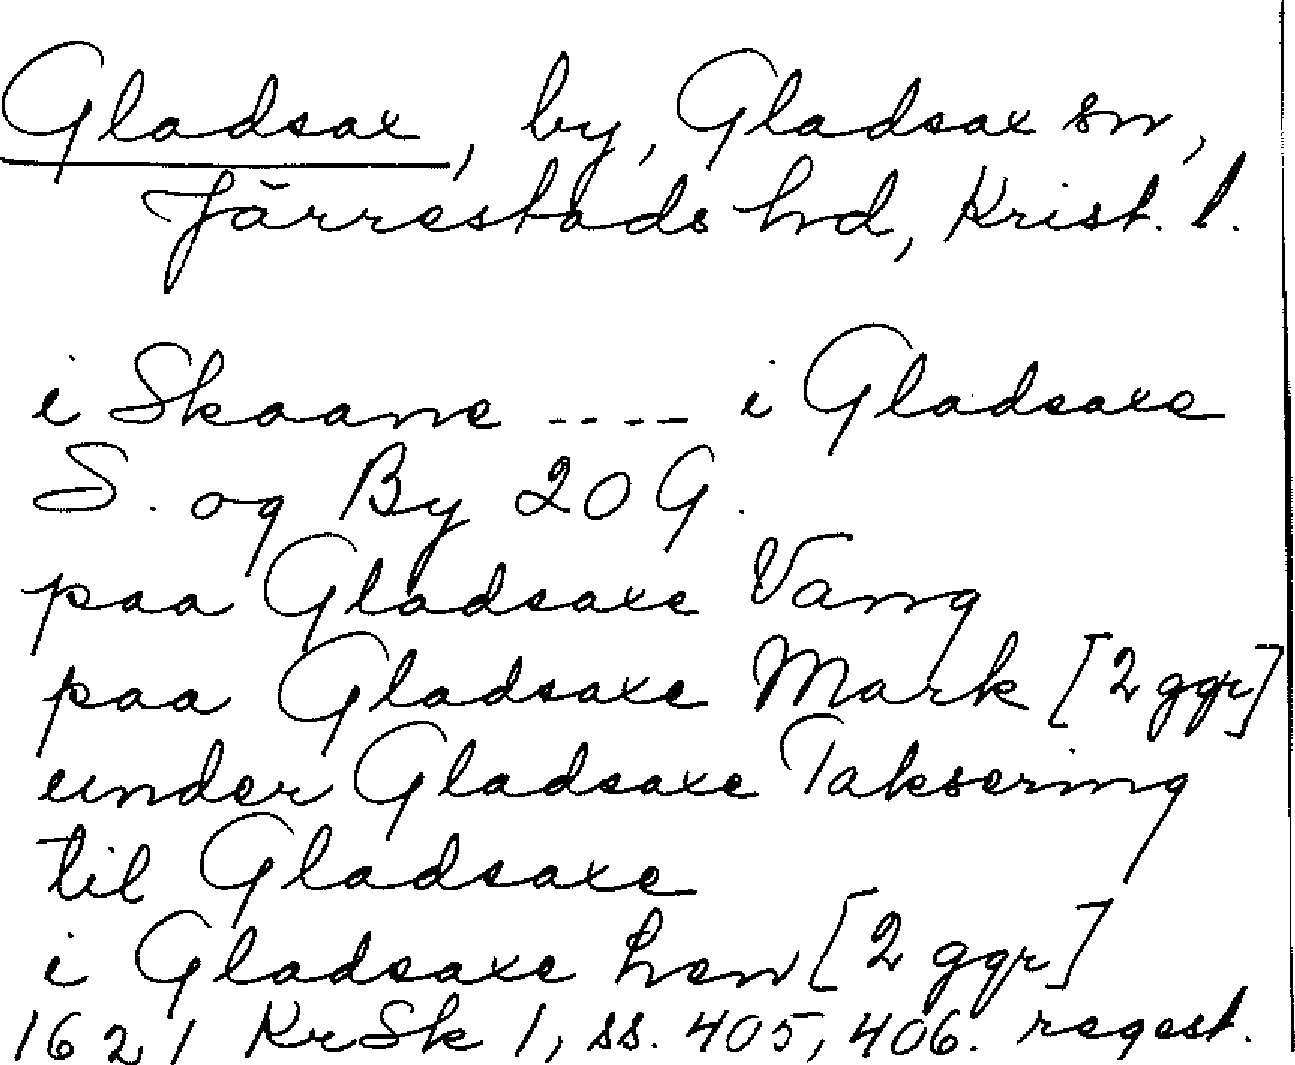 Gladsax, by, Gladsax sn,
Järrestads hd, Krist. l.
i Skaane ---- i Gladsaxe
S. og By 20 G.
paa Gladsaxe Vang
paa Gladsaxe Mark [2 ggr]
under Gladsaxe Taksering
til Gladsaxe
i Gladsaxe hen [2 ggr]
1621 KrSk 1, ss. 405, 406. regest.